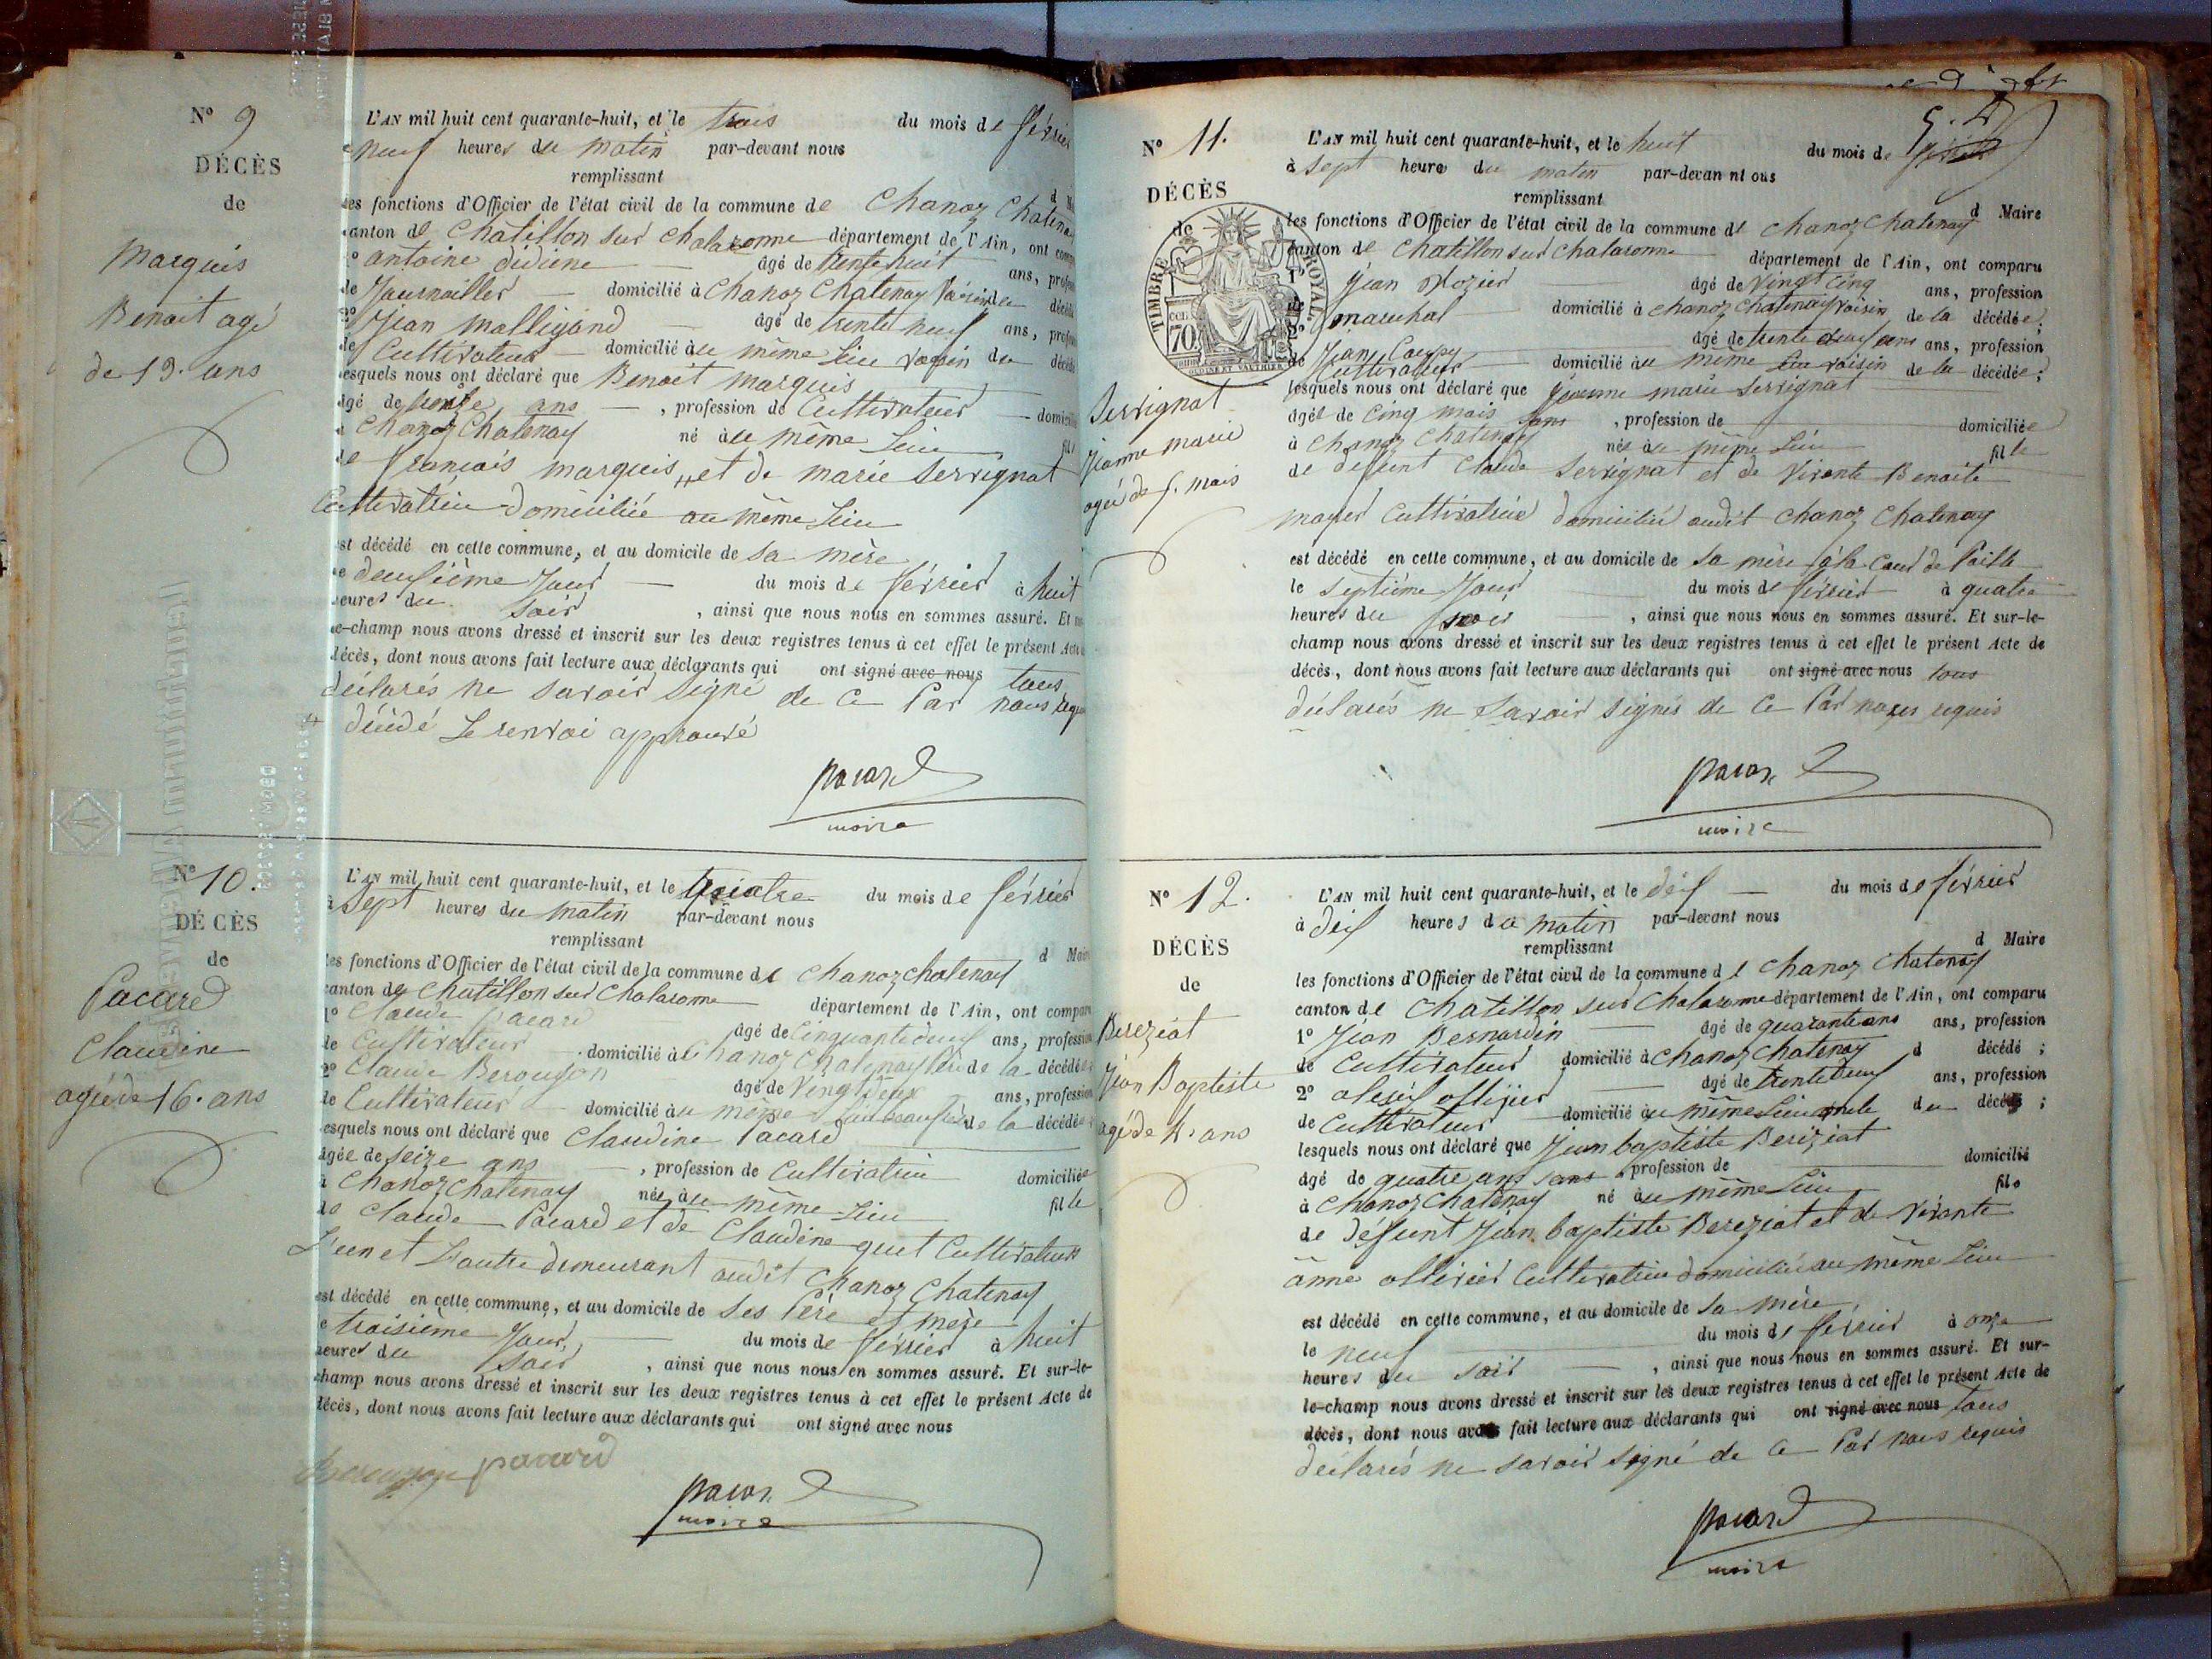 Nº 9
DÉCÈS
de
Marquis
Benoit agé
de 13. ans
L'AN mil huit cent quarante-huit, et le trois du mois de février
neuf heures du matin par-devant nous
remplissant
les fonctions d'Officier de l'état civil de la commune de Chanoz Chatenay
canton de Chatillon sur Chalaronne département de l'Ain, ont comparu
antoine âgé de trente huit ans, profession
de Journaillier domicilié à Chanoz Chatenay voisin du décédé
2º Jean Malligand âgé de trente neuf ans, profession
de Cultivateur domicilié au même Lieu voisin du décédé
lesquels nous ont déclaré que Benoit Marquis
âgé de treize ans, profession de Cultivateur domicilié
à Chanoz Chatenay né au même Lieu fils
de francois marquis # et de marie Servignat
Cultivatrice domiciliée au même Lieu
est décédé en cette commune, et au domicile de sa mère
le deusième Jour du mois de février à huit
heures du soir, ainsi que nous nous en sommes assuré. Et sur
le-champ nous avons dressé et inscrit sur les deux registres tenus à cet effet le présent Acte de
décès, dont nous avons fait lecture aux déclarants qui ont signé avec nous tous
déclarés ne savoir signé de ce Par nous requis
# décédé Le renvoi approuvé
pacard
maire
Nº 10.
DÉCÈS
de
Pacard
Claudine
agée de 16. ans
L'AN mil huit cent quarante-huit, et le quatre du mois de février
à sept heures du matin par-devant nous
remplissant d Maire
les fonctions d'Officier de l'état civil de la commune de Chanoz Chatenay
canton de Chatillon sur Chalaronne département de l'Ain, ont comparu
1º Claude pacard âgé de Cinquante deux ans, profession
de Cultivateur domicilié à Chanoz Chatenay Père de la décédée
2º Claude Beroujon âgé de Vingt deux ans, profession
de Cultivateur domicilié au même Lieu beaufrère de la décédée
lesquels nous ont déclaré que Claudine Pacard
âgée de seize ans, profession de Cultivatrice domiciliée
à Chanoz Chatenay née au même Lieu fille
de Claude Pacard et de Claudine guet Cultivateurs
L'un et L'autre demeurant audit Chanoz Chatenay
est décédé en cette commune, et au domicile de ses Père et mère
le troisième Jour du mois de février à huit
heures du soir, ainsi que nous nous en sommes assuré. Et sur-le-
champ nous avons dressé et inscrit sur les deux registres tenus à cet effet le présent Acte de
décès, dont nous avons fait lecture aux déclarants qui ont signé avec nous
Beroujon pacard
pacard
maire
Nº 11.
DÉCÈS
de
TIMBRE ROYAL
70
Servignat
Jeanne marie
agée de 5. mois
L'AN mil huit cent quarante-huit, et le huit du mois de février
à sept heure du matin par-devan nt ous
remplissant d Maire
les fonctions d'Officier de l'état civil de la commune de Chanoz Chatenay
canton de Chatillon sur Chalaronne département de l'Ain, ont comparu
1º Jean Mozier âgé de Vingt Cinq ans, profession
de marechal domicilié à Chanoz Chatenay voisin de la décédée;
2º Jean Coupy âgé de trente ans, profession
de Cultivateur domicilié au même Lieu voisin de la décédée;
lesquels nous ont déclaré que Jeanne marie Servignat
âgée de Cinq mois sans, profession de domiciliée
à Chanoz Chatenay née au même Lieu fille
de deffunt Claude Servignat et de Vivante Benoite
mayer Cultivatrice domiciliée audit Chanoz Chatenay
est décédé en cette commune, et au domicile de sa mère
le septième Jour du mois de février à quatre
heures du soir, ainsi que nous nous en sommes assuré. Et sur-le-
champ nous avons dressé et inscrit sur les deux registres tenus à cet effet le présent Acte de
décès, dont nous avons fait lecture aux déclarants qui ont signé avec nous tous
déclarés ne savoir signés de ce Par nous requis
pacard
maire
Nº 12.
DÉCÈS
de
Bereziat
Jean Baptiste
agé de 4. ans
L'AN mil huit cent quarante-huit, et le dix du mois de février
à dix heures du matin par-devant nous
remplissant d Maire
les fonctions d'Officier de l'état civil de la commune de Chanoz Chatenay
canton de Chatillon sur Chalaronne département de l'Ain, ont comparu
1º Jean Bernardin âgé de quarante ans ans, profession
de Cultivateur domicilié à Chanoz Chatenay d décédé;
2º alexis ollivier âgé de trente neuf ans, profession
de Cultivateur domicilié au même Lieu oncle du décédé;
lesquels nous ont déclaré que Jean baptiste Bereziat
âgé de quatre ans sans profession de domicilié
à Chanoz Chatenay né au même Lieu fils
de Défunt Jean baptiste Bereziat et de Vivante
anne ollivier Cultivatrice domiciliée au même Lieu
est décédé en cette commune, et au domicile de sa mère
le neuf du mois de février à onze
heures du soir, ainsi que nous nous en sommes assuré. Et sur-
le-champ nous avons dressé et inscrit sur les deux registres tenus à cet effet le présent Acte de
décès, dont nous avons fait lecture aux déclarants qui ont signé avec nous tous
déclarés ne savoir signé de ce Par nous requis
pacard
maire